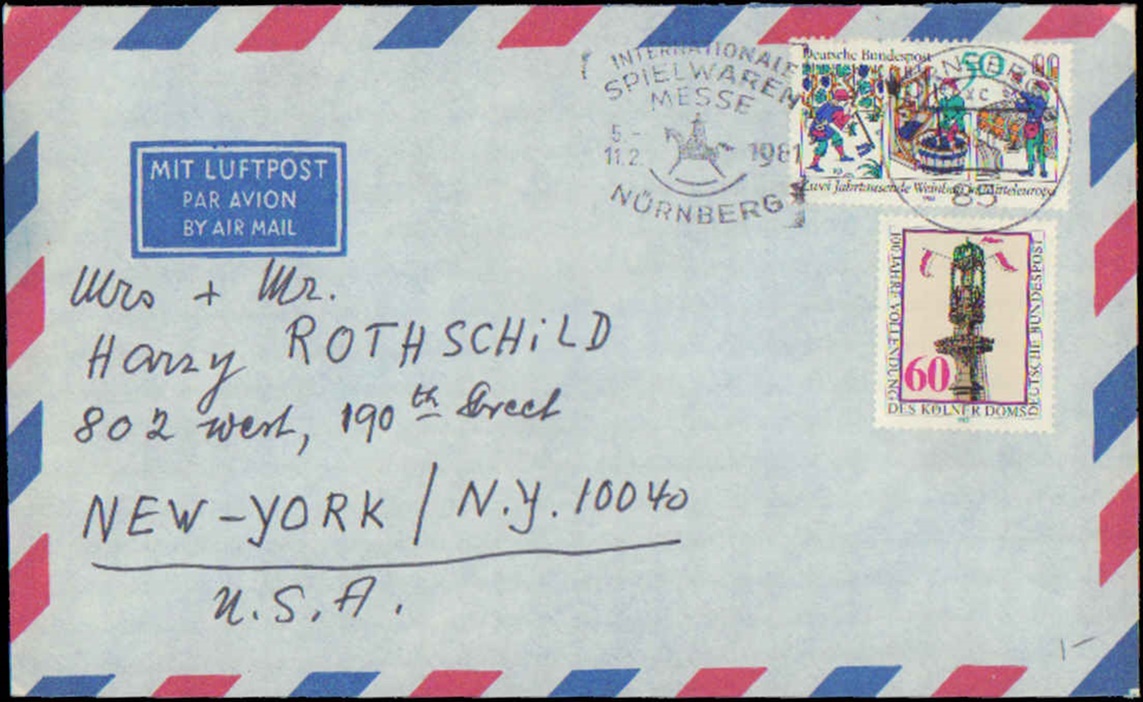 INTERNATIONALE
SPIELWAREN
MESSE
5.-
11.2. 1981
NÜRNBERG
NÜRNBERG
85
Deutsche Bundespost 50
Zwei Jahrtausende Weinbau in Mitteleuropa
100 JAHRE VOLLENDUNG
DES KÖLNER DOMS
DEUTSCHE BUNDESPOST
60
MIT LUFTPOST
PAR AVION
BY AIR MAIL
Mrs + Mr.
Harry ROTHSCHiLD
802 west, 190th Street
NEW-YORK / N.Y. 10040
U.S.A.
1-